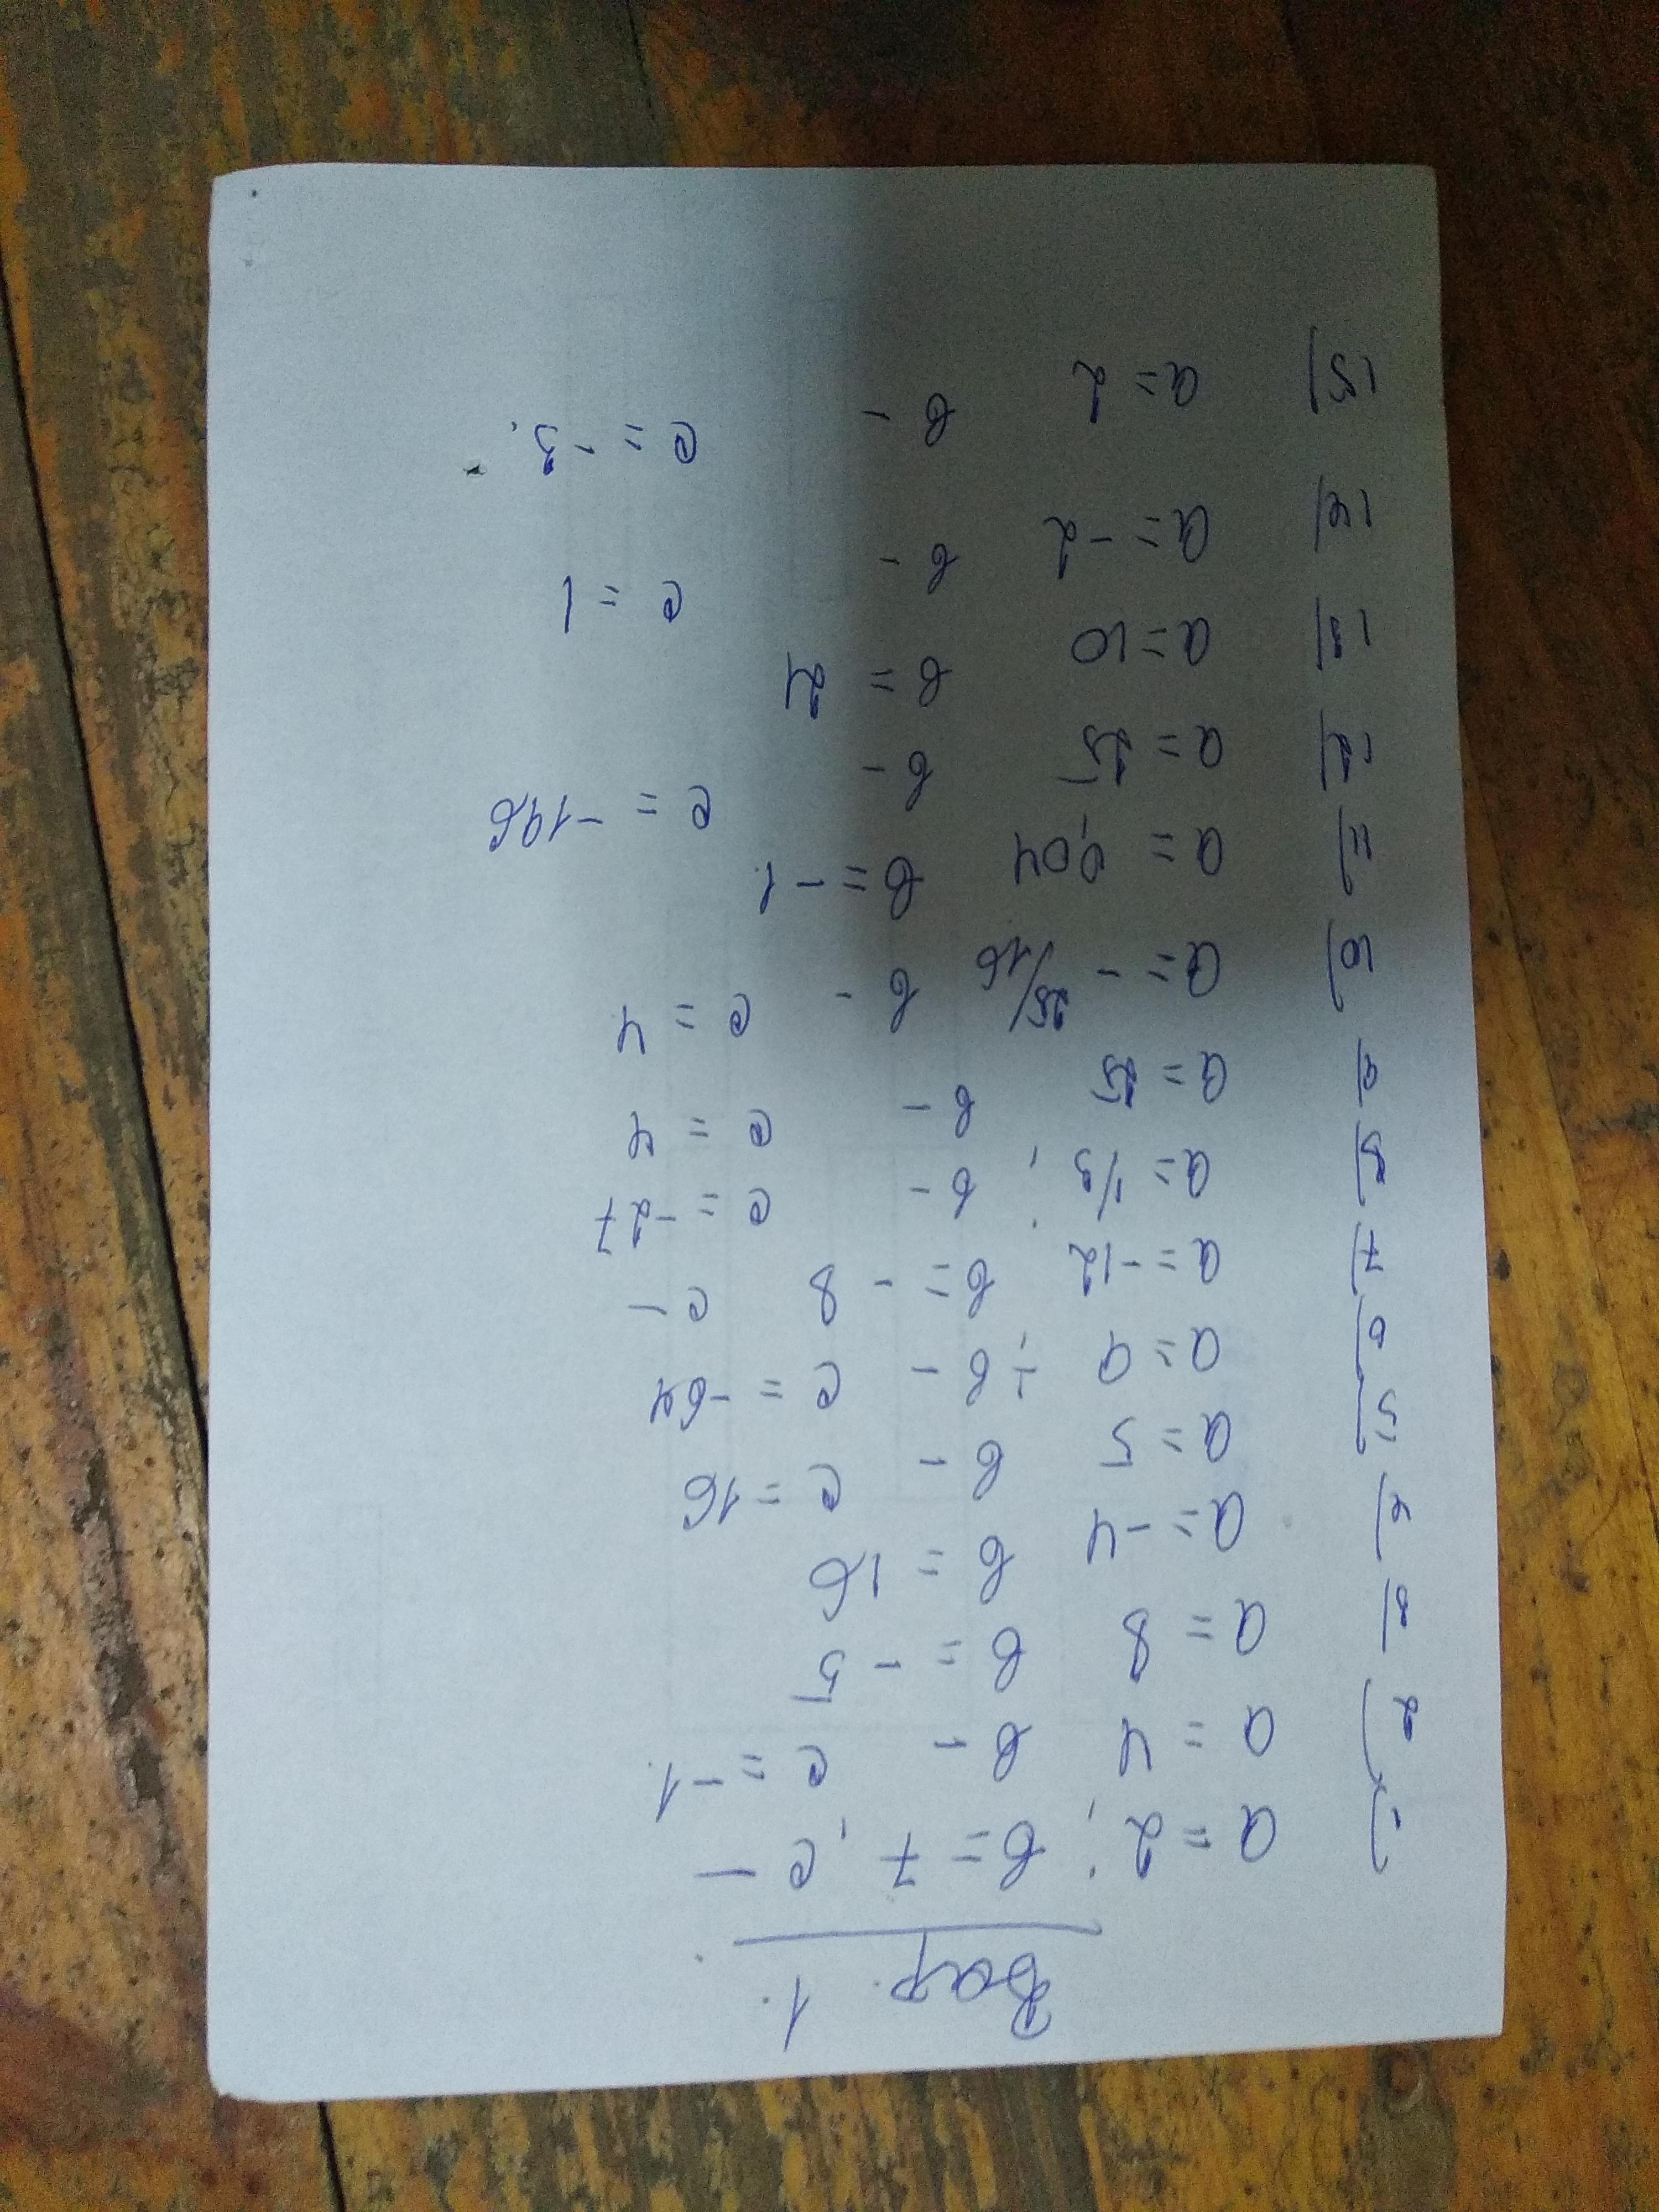 Вар. 1.
1) a = 2; в = 7; с –
2) a = 4 в – с = –1.
3) a = 8 в = –5
4) a = –4 в = 16
5) a = 5 в – с = 16
6) a = 9 ; в – с = –64
7) a = –12 в = –8 с –
8) a = 1/3; в – с = –27
9) a = 25 в – с = 4
10) a = – 25/16 в – с = 4
11) a = 0,04 в = –1.
12) a = 25 в – с = –196
13) a = 10 в = 21
14) a = –2 в – с = 1
15) a = 2 в – с = –3.